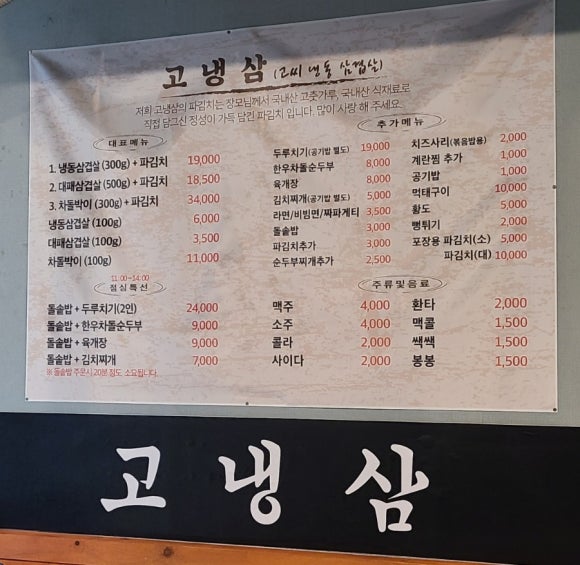 고냉삼 (고씨 냉동 삼겹살)
저희 고냉삼의 파김치는 장모님께서 국내산 고춧가루, 국내산 식재료로
직접 담그신 정성이 가득 담긴 파김치 입니다. 많이 사랑 해 주세요.
대표메뉴
1. 냉동삼겹살 (300g) + 파김치 19,000
2. 대패삼겹살 (500g) + 파김치 18,500
3. 차돌박이 (300g) + 파김치 34,000
냉동삼겹살 (100g) 6,000
대패삼겹살 (100g) 3,500
차돌박이 (100g) 11,000
추가메뉴
두루치기(공기밥 별도) 19,000
한우차돌순두부 8,000
육개장 8,000
김치찌개(공기밥 별도) 5,000
라면/비빔면/짜파게티 3,500
돌솥밥 3,000
파김치추가 3,000
순두부찌개추가 2,500
치즈사리(볶음밥용) 2,000
계란찜 추가 1,000
공기밥 1,000
먹태구이 10,000
황도 5,000
뻥튀기 2,000
포장용 파김치(소) 5,000
파김치(대) 10,000
11:00~14:00
점심특선
돌솥밥 + 두루치기(2인) 24,000
돌솥밥 + 한우차돌순두부 9,000
돌솥밥 + 육개장 9,000
돌솥밥 + 김치찌개 7,000
※ 돌솥밥 주문시 20분 정도 소요됩니다.
주류및음료
맥주 4,000
소주 4,000
콜라 2,000
사이다 2,000
환타 2,000
맥콜 1,500
쌕쌕 1,500
봉봉 1,500
고냉삼